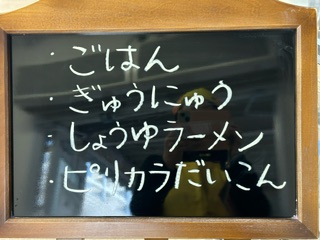 ・ごはん
・ぎゅうにゅう
・しょうゆラーメン
・ピリカラだいこん